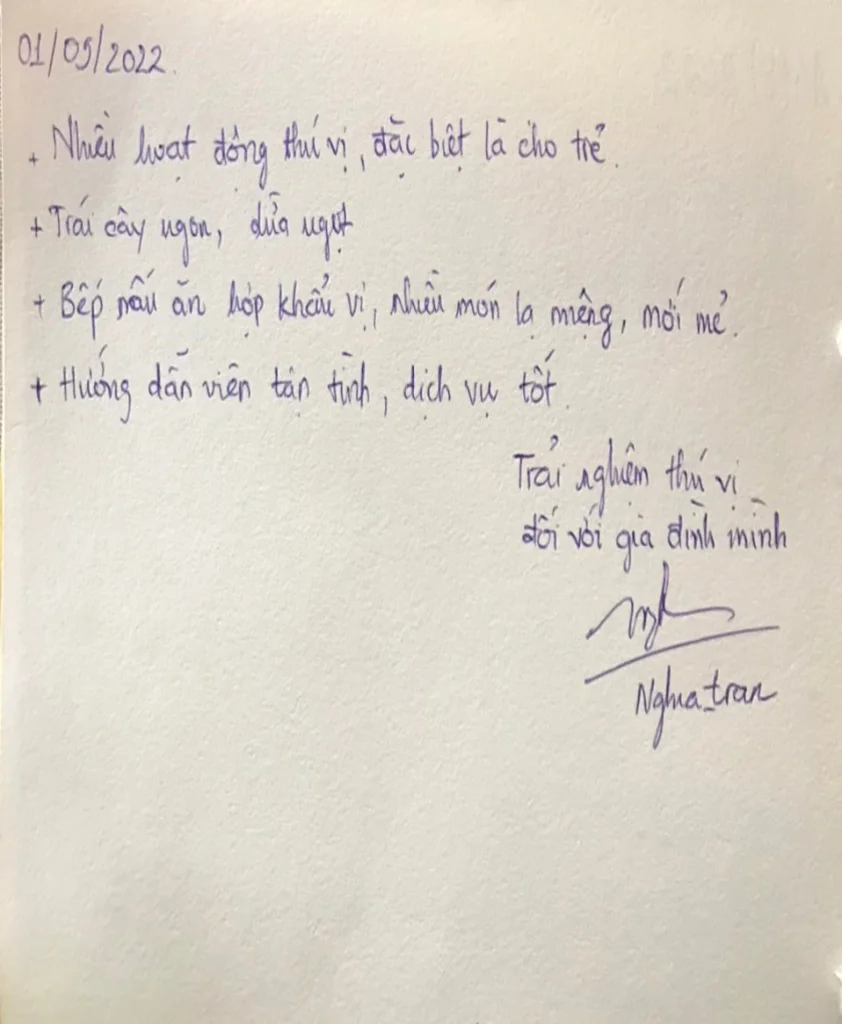 01/05/2022.
+ Nhiều hoạt động thú vị, đặc biệt là cho trẻ.
+ Trái cây ngon, dừa ngọt
+ Bếp nấu ăn hợp khẩu vị, nhiều món lạ miệng, mới mẻ.
+ Hướng dẫn viên tận tình, dịch vụ tốt.
Trải nghiệm thú vị
đối với gia đình mình
Nghia_tran